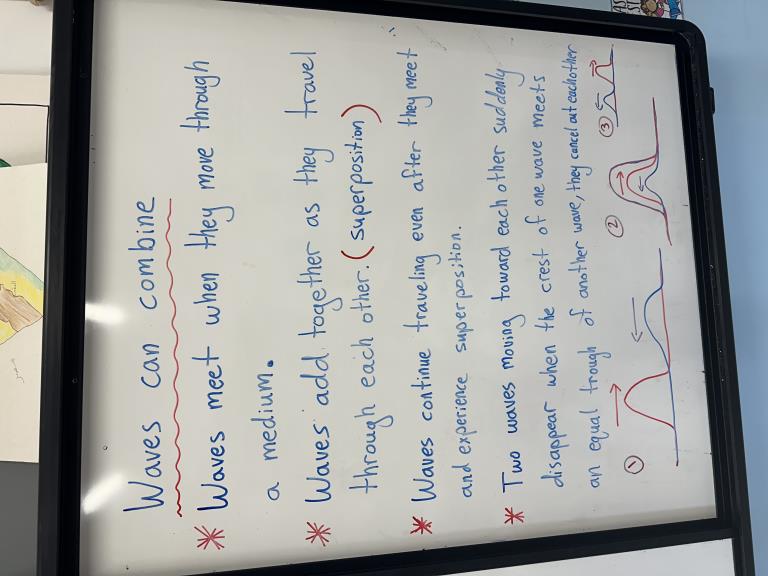 Waves can combine
* Waves meet when they move through
a medium.
* Waves add together as they travel
through each other. (superposition)
* Waves continue traveling even after they meet
and experience superposition.
* Two waves moving toward each other suddenly
disappear when the crest of one wave meets
an equal trough of another wave, they cancel out eachother
① ② ③